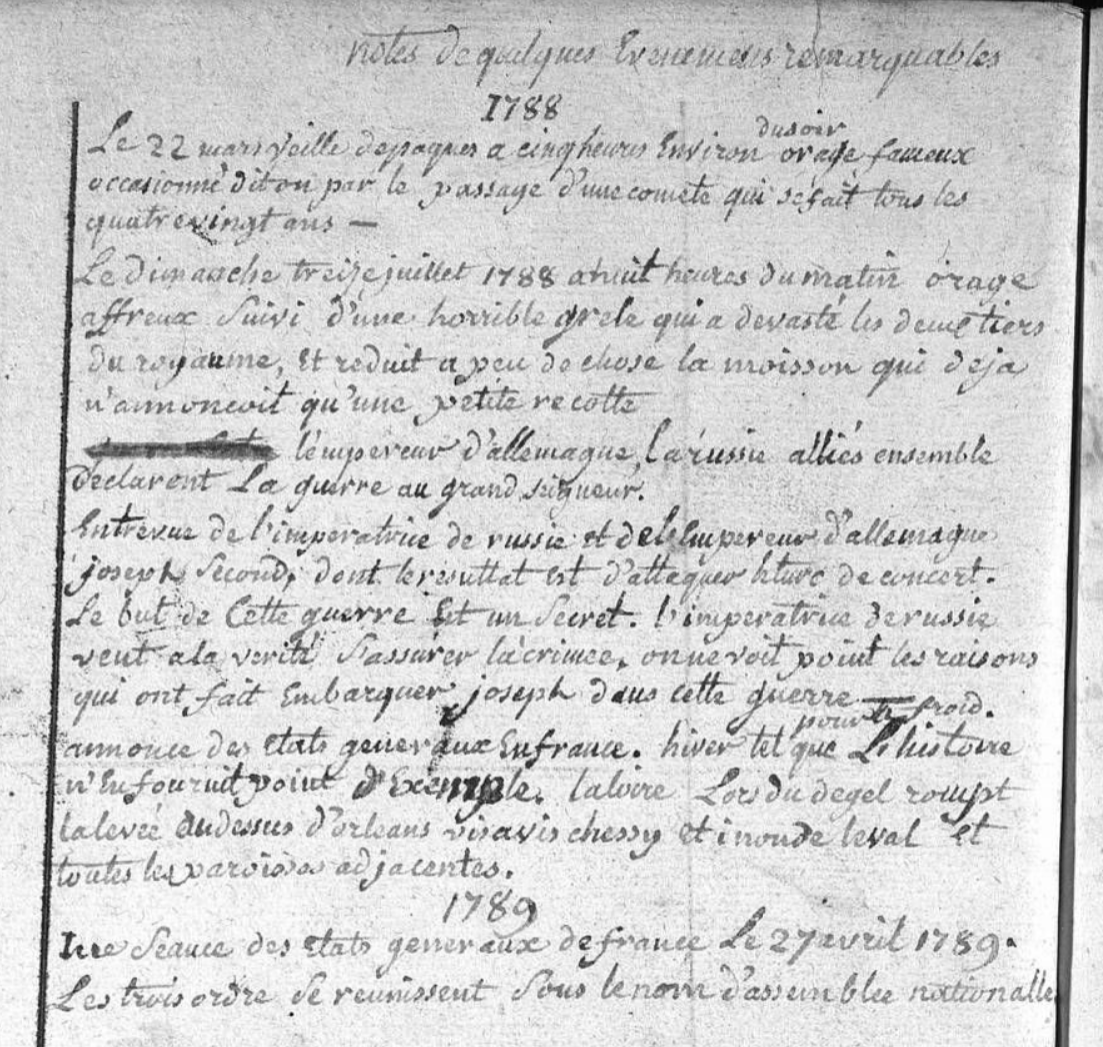 notes de quelques Evenemens remarquables
1788
Le 22 mars veille depaques a cinq heures Environ dusoir orage fameux
occasionné diton par le passage d'une comete qui sefait tous les
quatrevingt ans —
Le dimanche treize juillet 1788 ahuit heures du matin orage
affreux Suivi d'une horrible grele qui a devasté les deux tiers
du royaume, Et reduit a peu de chose la moisson qui deja
n'annoncoit qu'une petite recolte
l'empereur d'allemague, la russie alliés ensemble
Déclaront La guerre au grand seigneur.
Entrevue de l'imperatrice de russie et de l'Empereur d'allemague
joseph Second, dont le resultat Est d'attaquer leturc de concert.
Le but de Cette guerre Est un Secret. l'imperatrice de russie
veut ala verité S'assurer la crimee, on ne voit point les raisons
qui ont fait Embarquer joseph dans cette guerre
annonce des Etats generaux En france. hiver tel que pour le froid. L'histoire
n'En fournit point d'Exemple. la loire Lors du degel rompt
la levée audessus d'orleans vis avis chessy et inonde leval et
toutes les paroisses adjacentes.
1789
1ere Seance des Etats generaux de france Le 27 avril 1789.
Les trois ordre Se reunissent Sous le nom d'assemblée nationalle